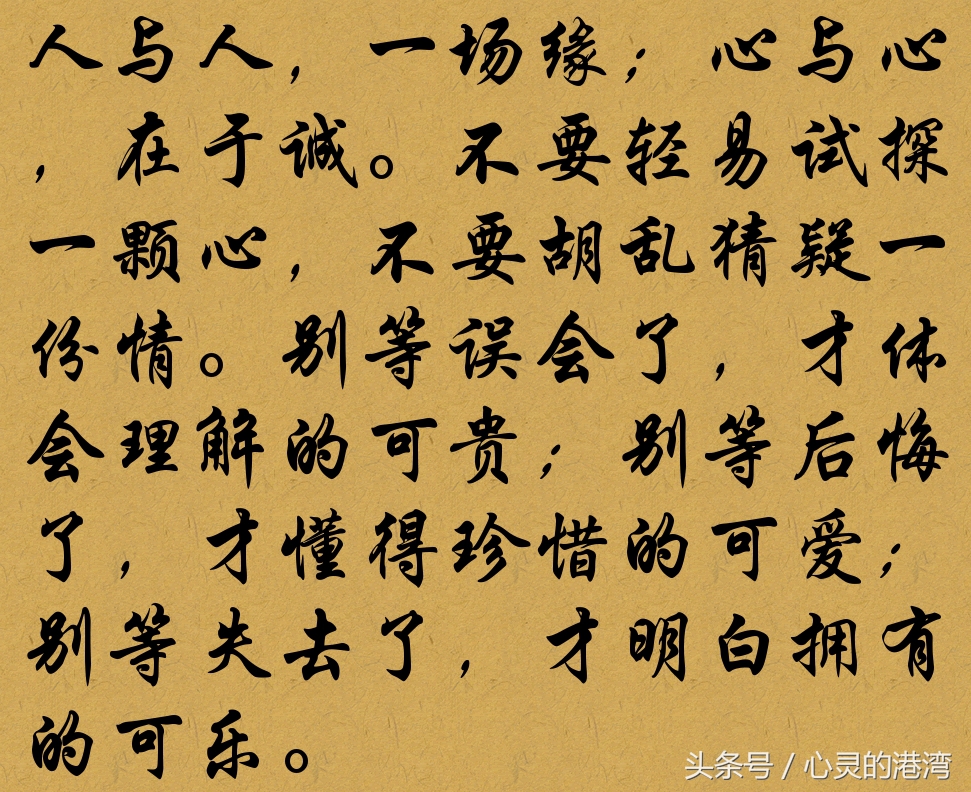 人与人，一场缘；心与心
，在于诚。不要轻易试探
一颗心，不要胡乱猜疑一
份情。别等误会了，才体
会理解的可贵；别等后悔
了，才懂得珍惜的可爱；
别等失去了，才明白拥有
的可乐。
头条号 / 心灵的港湾